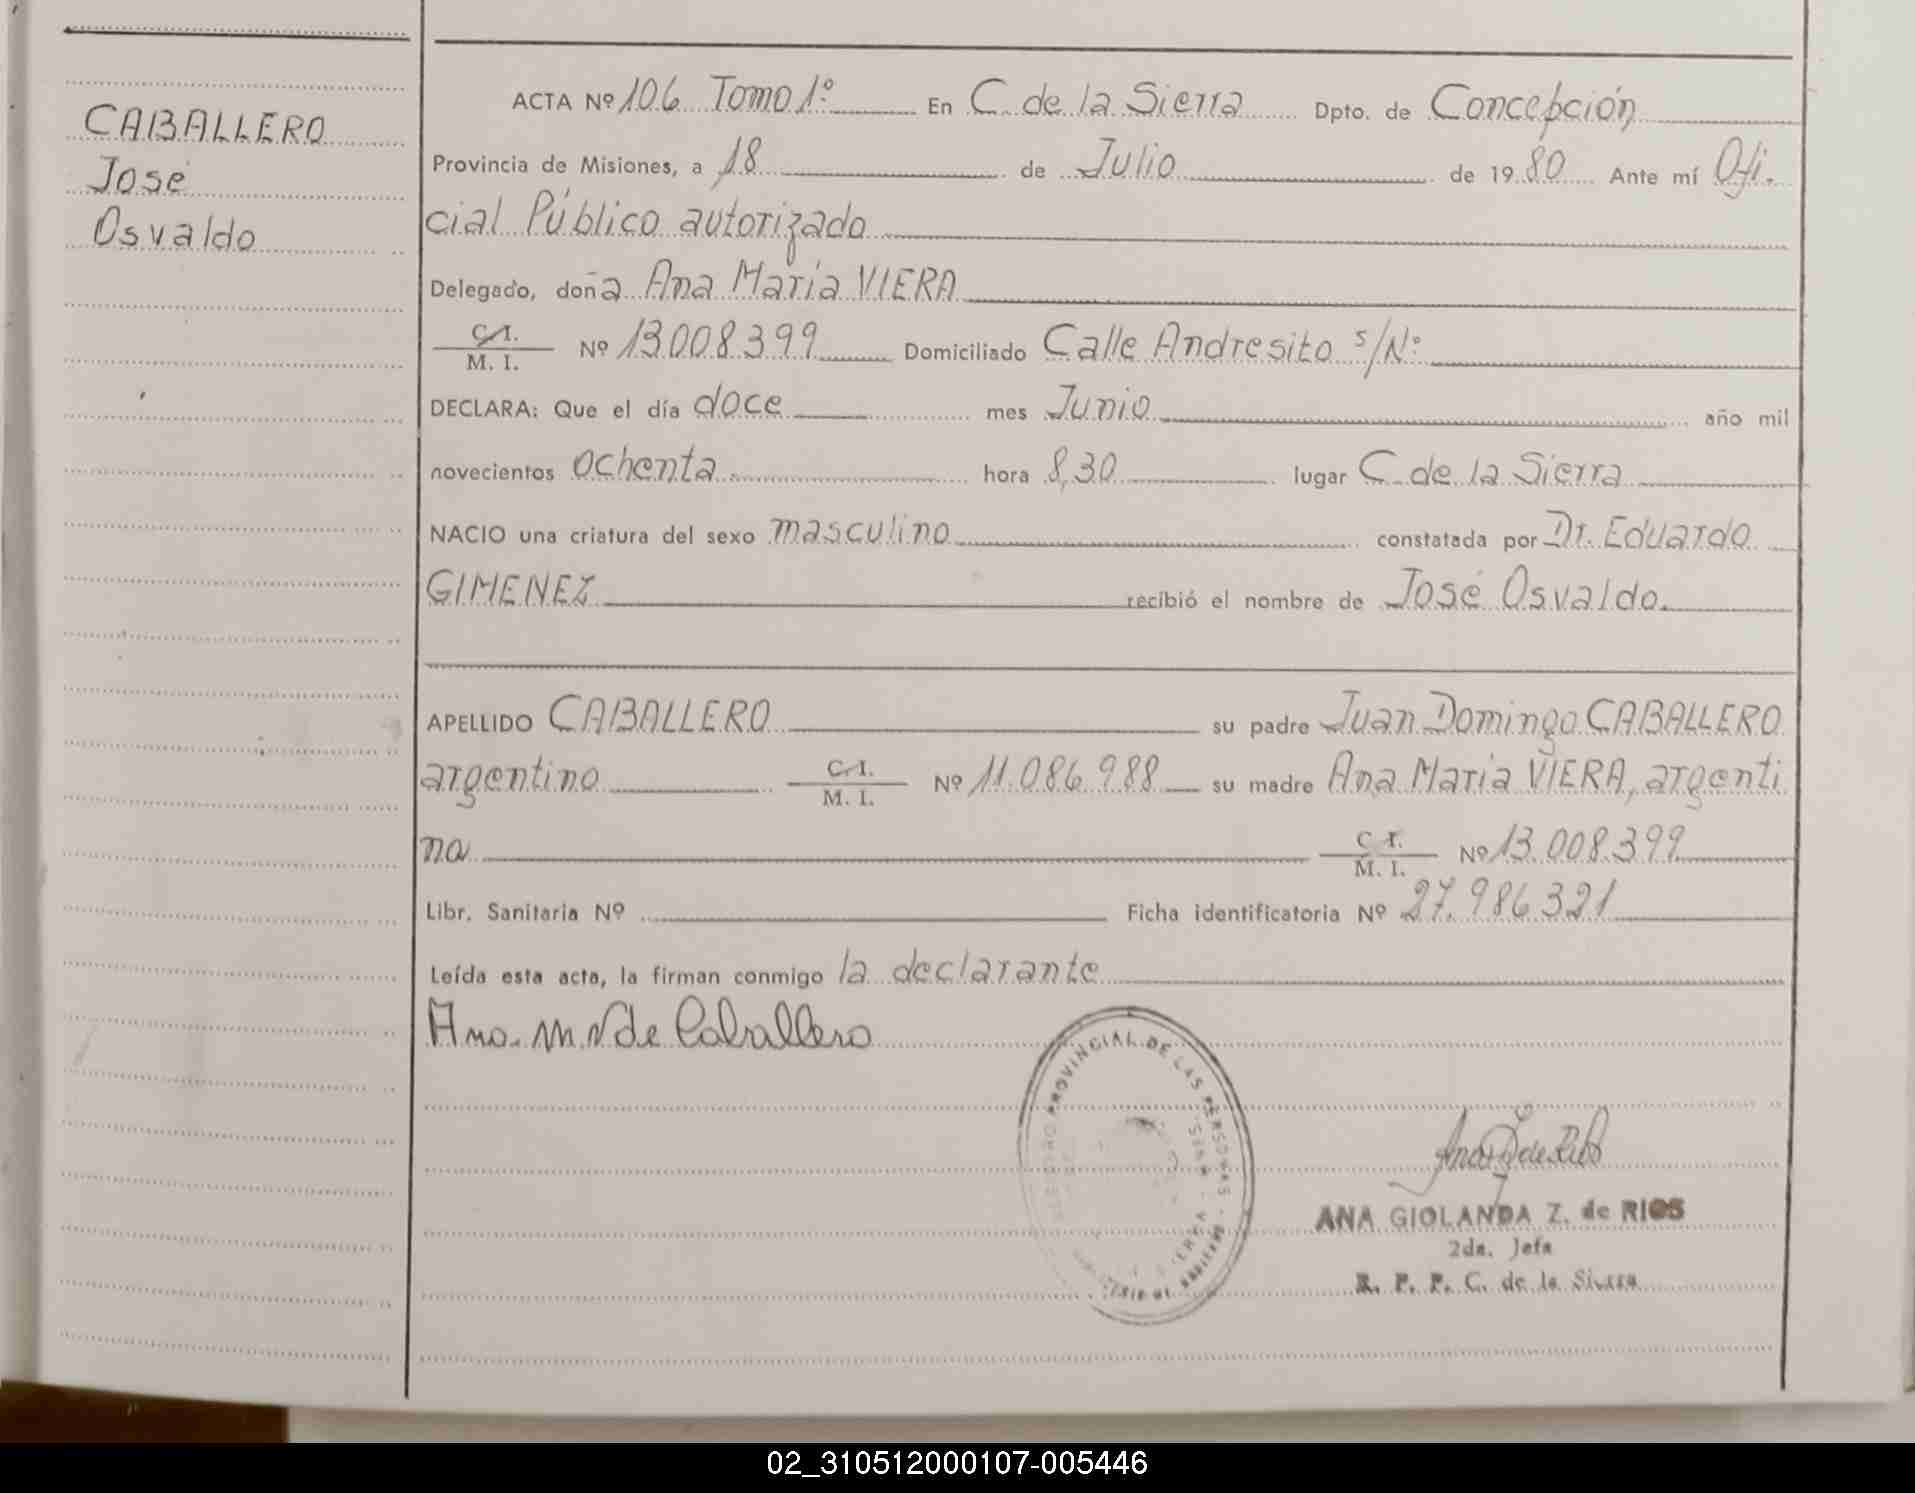 CABALLERO
José
Osvaldo
ACTA Nº 106 Tomo 1º En C. de la Sierra Dpto. de Concepción
Provincia de Misiones, a 18 de Julio de 1980 Ante mí Ofi.
cial Público autorizado
Delegado, doña Ana María VIERA
C.I. / M. I. Nº 13.008.399 Domiciliado Calle Andresito s/Nº
DECLARA: Que el día doce mes Junio año mil
novecientos ochenta hora 8,30 lugar C. de la Sierra
NACIO una criatura del sexo masculino constatada por Dr. Eduardo
GIMENEZ recibió el nombre de José Osvaldo.
APELLIDO CABALLERO su padre Juan Domingo CABALLERO
argentino C.I. / M. I. Nº 11.086.988 su madre Ana María VIERA, argenti
na C.I. / M. I. Nº 13.008.399
Libr. Sanitaria Nº Ficha identificatoria Nº 27.986.321
Leída esta acta, la firman conmigo la declarante
Ana. M. V de Caballero
PROVINCIAL DE LAS PERSONAS
ANA GIOLANDA Z. de RIOS
2da. Jefa
R. P. P. C. de la Sierra
02_310512000107-005446